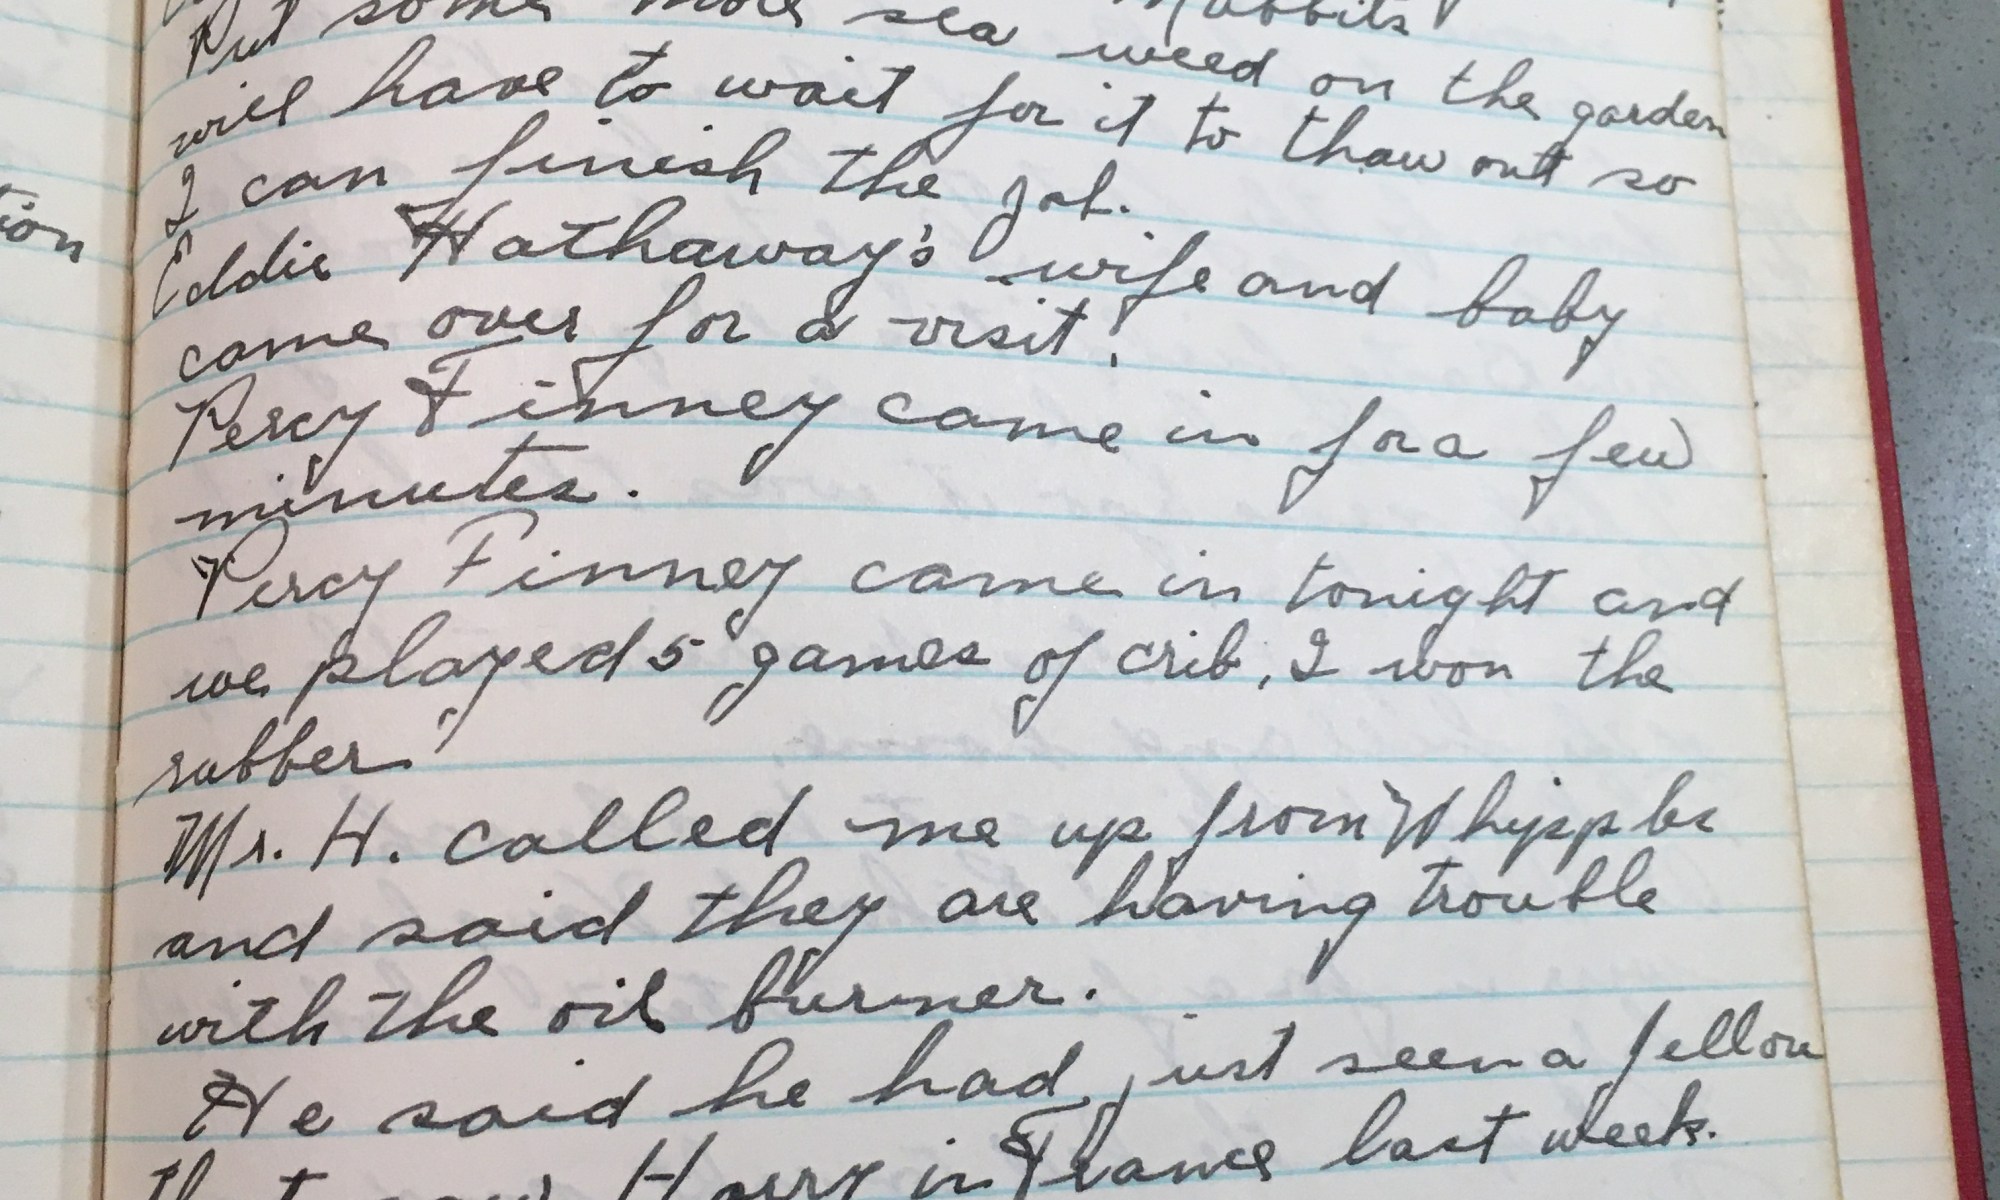 Rabbits
Put some more sea weed on the garden
will have to wait for it to thaw out so
I can finish the job.
Eddie Hathaway's wife and baby
came over for a visit.
Percy Finney came in for a few
minutes.
Percy Finney came in tonight and
we played 5 games of crib, I won the
rubber.
Mr. H. called me up from Whipples
and said they are having trouble
with the oil burner.
He said he had just seen a fellow
that saw Harry in France last week.
tion